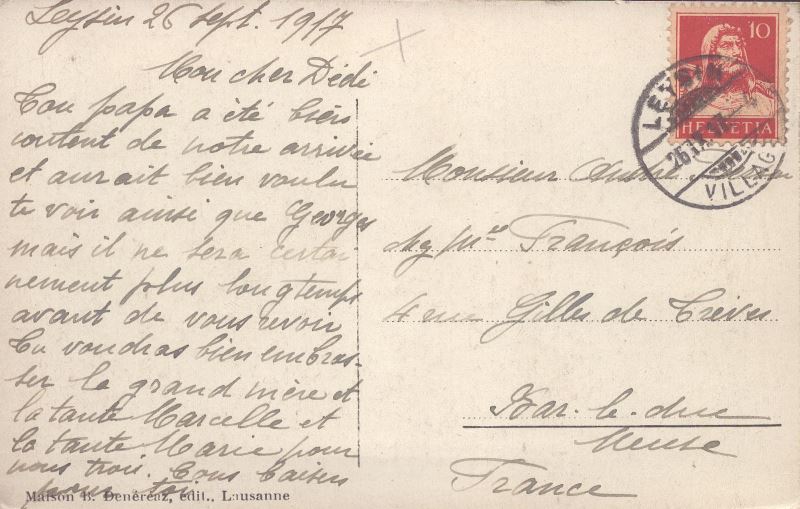 Leysin 26 sept. 1917
Mon cher Dédé
Ton papa a été bien
content de notre arrivée
et aurait bien voulu
te voir ainsi que Georges
mais il ne sera certai-
nement plus longtemps
avant de vous revoir
Tu voudras bien embras-
ser la grand mère et
la tante Marcelle et
la tante Marie pour
nous trois. Bons baisers
pour toi
Maison B. Denéréaz, édit., Lausanne
10
HELVETIA
LEYSIN
26.IX.17
VILLAGE
Monsieur André
chez Mme François
4 rue Gilles de Trèves
Bar-le-duc
Meuse
France